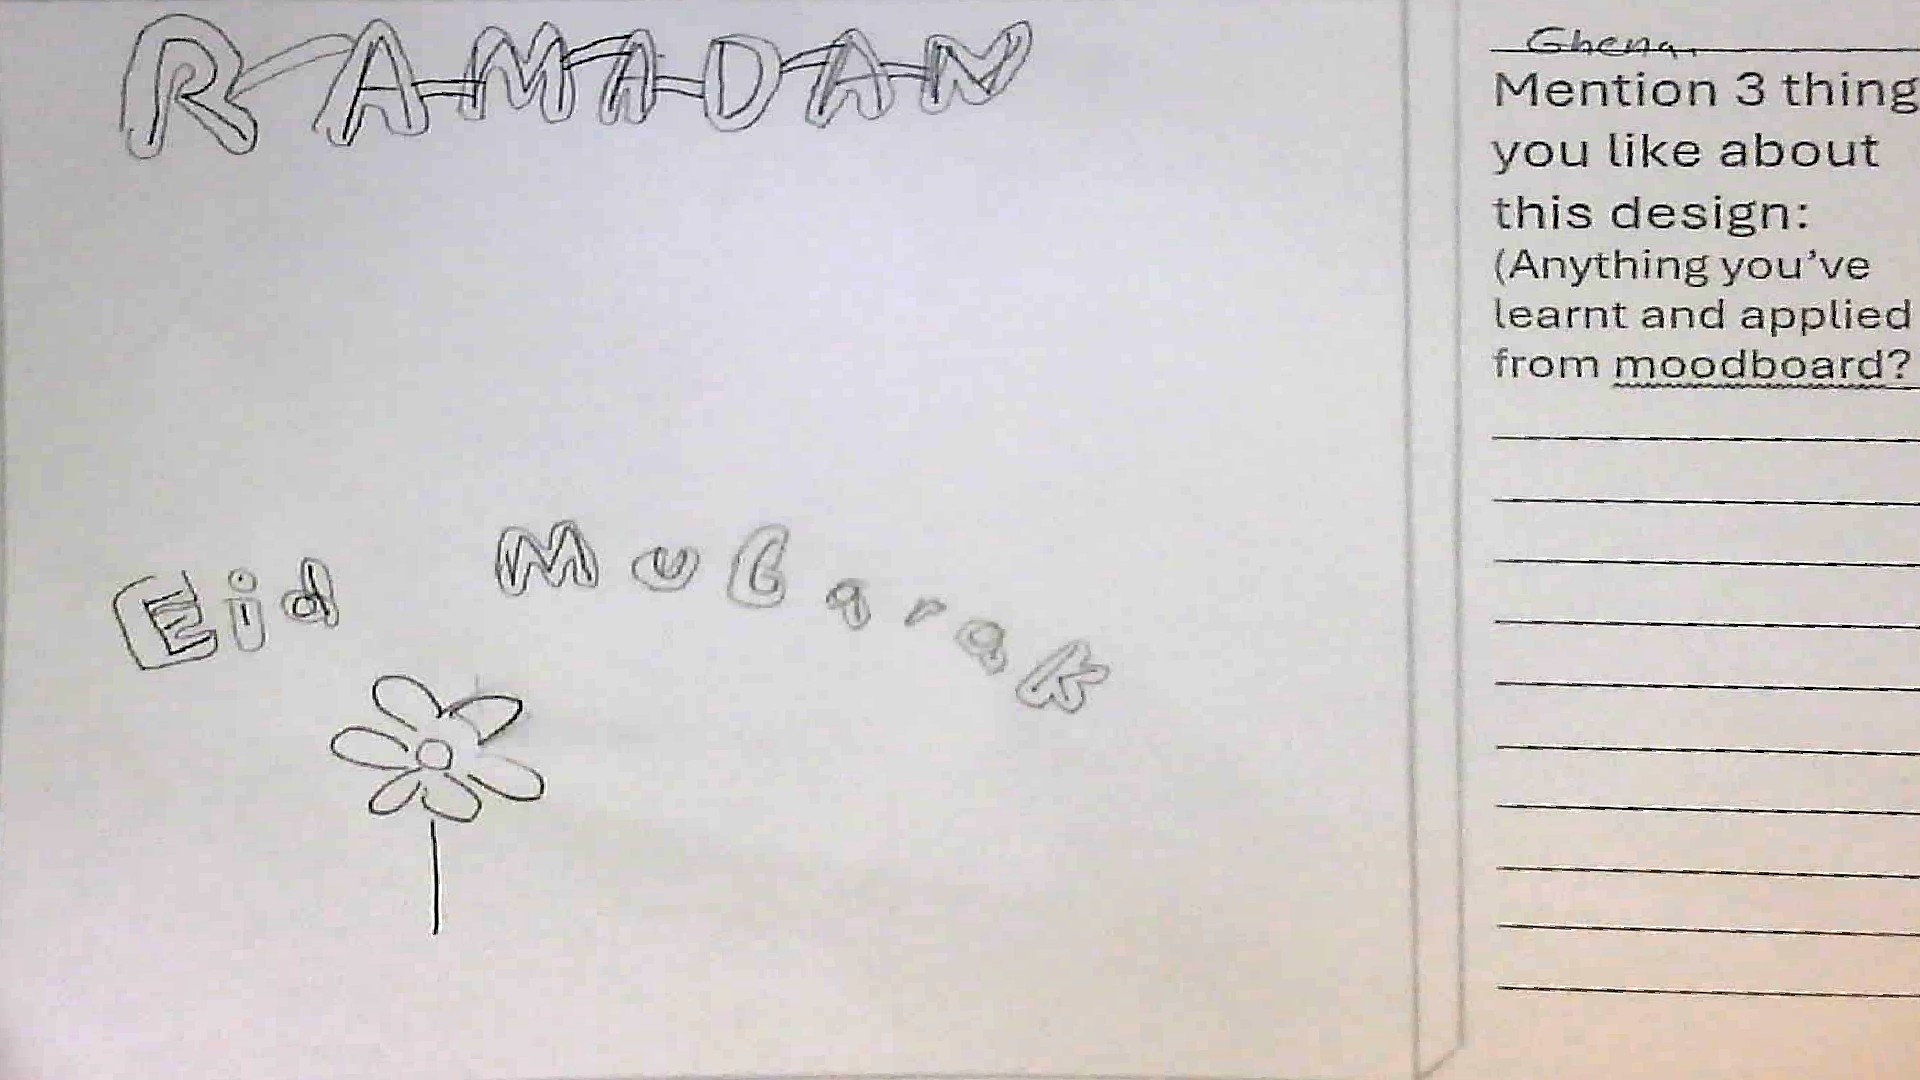 RAMADAN
Eid Mubarak
Ghena.
Mention 3 thing
you like about
this design:
(Anything you've
learnt and applied
from moodboard?